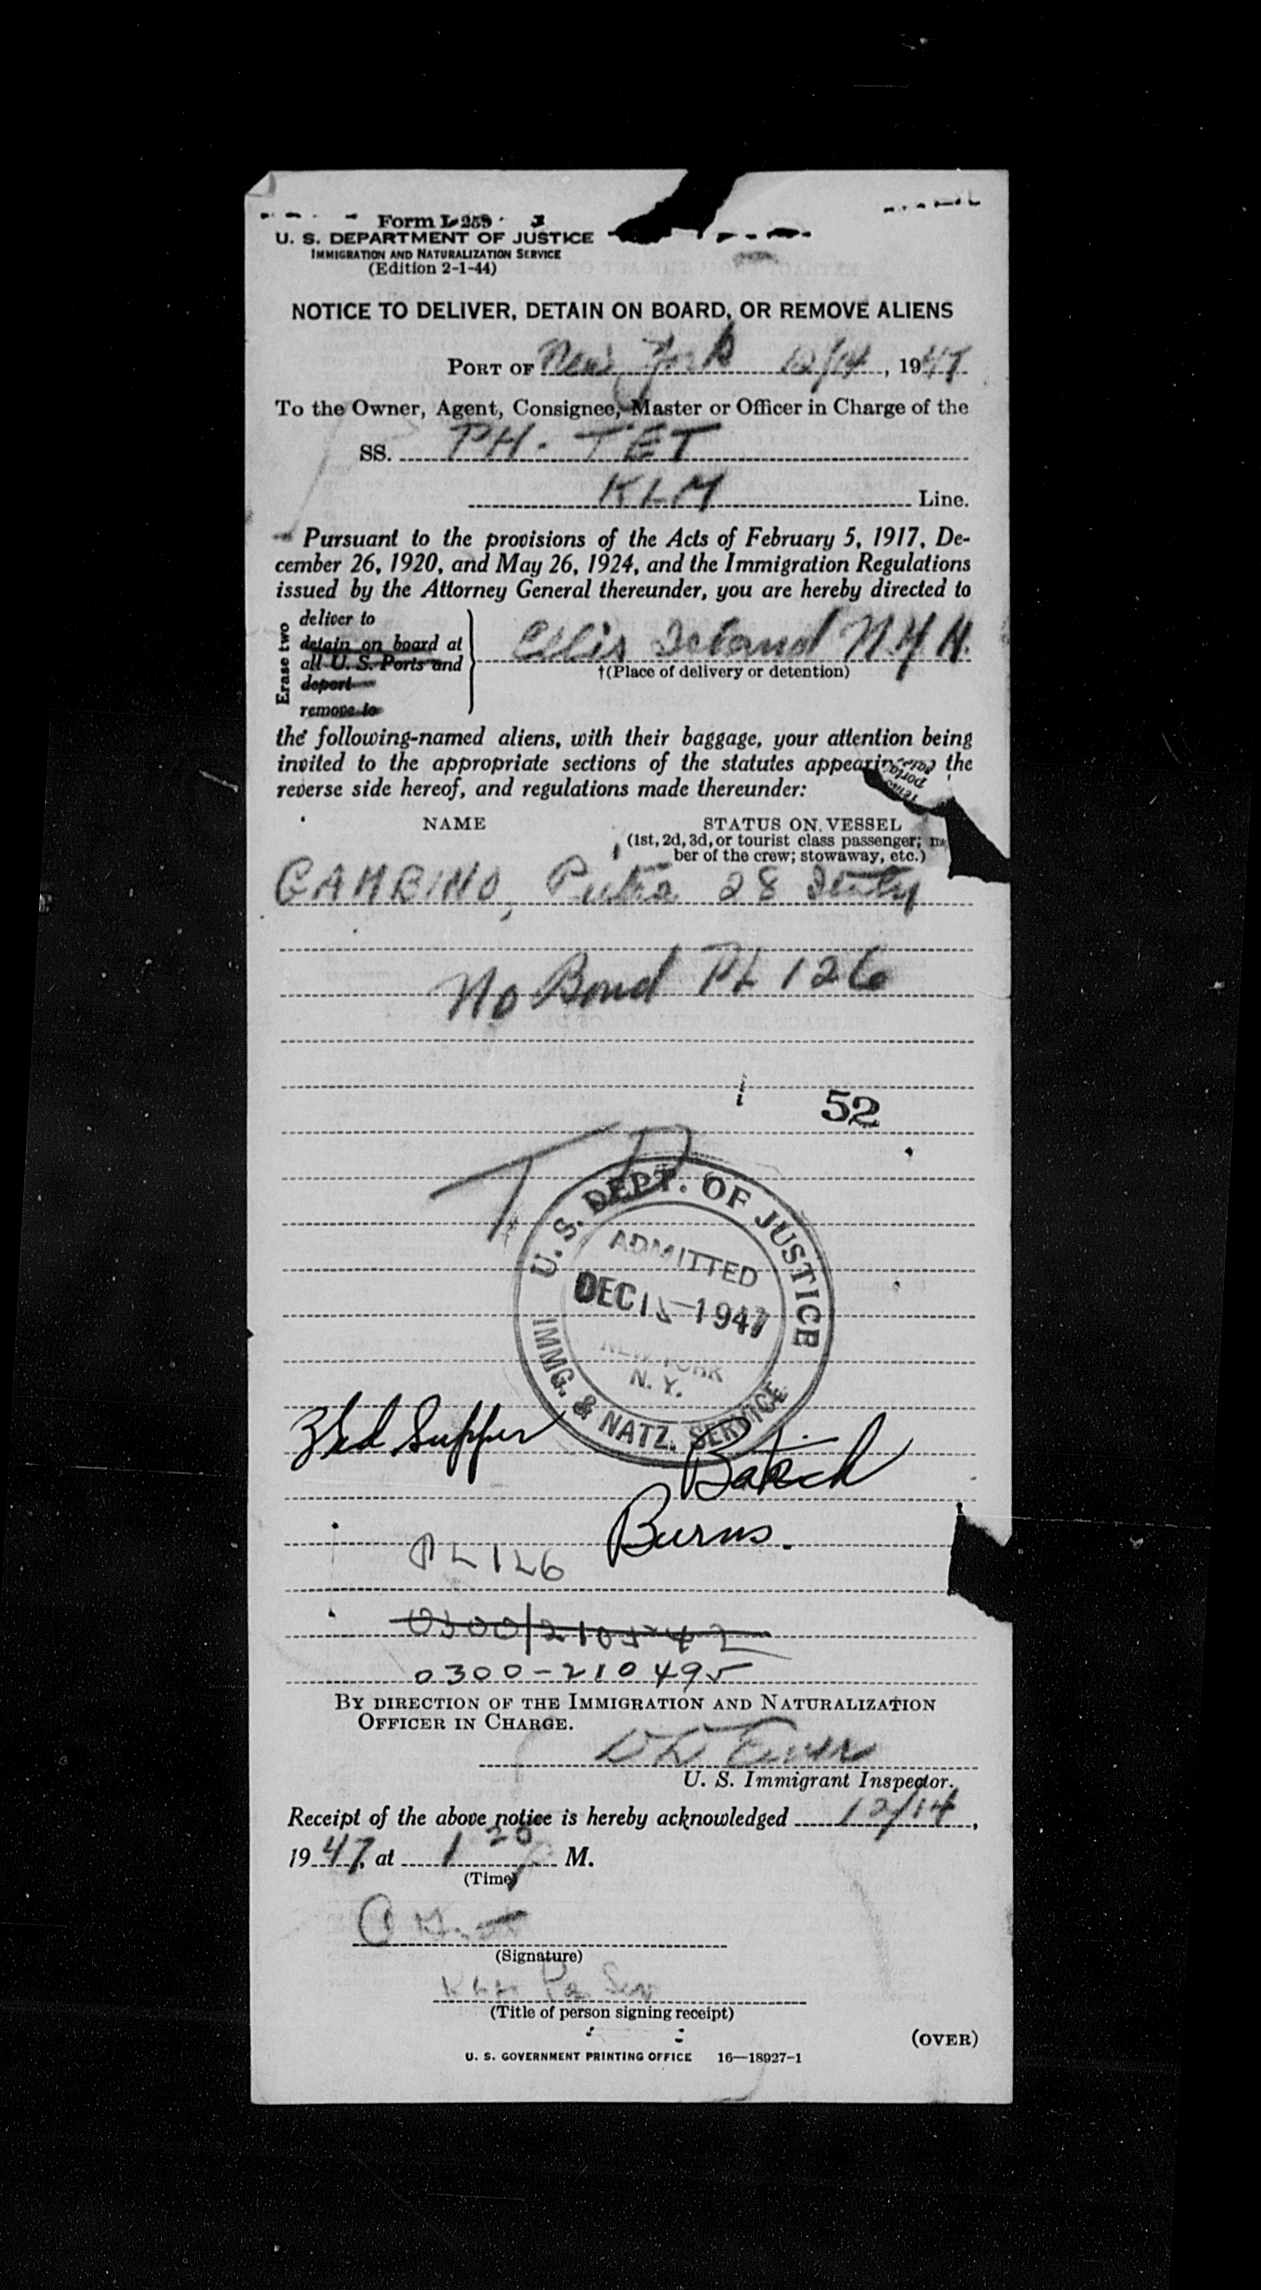 Form I-259
U. S. DEPARTMENT OF JUSTICE
IMMIGRATION AND NATURALIZATION SERVICE
(Edition 2-1-44)
NOTICE TO DELIVER, DETAIN ON BOARD, OR REMOVE ALIENS
PORT OF New York 12/14, 1947
To the Owner, Agent, Consignee, Master or Officer in Charge of the
SS. PH-TET
KLM Line.
Pursuant to the provisions of the Acts of February 5, 1917, De-
cember 26, 1920, and May 26, 1924, and the Immigration Regulations
issued by the Attorney General thereunder, you are hereby directed to
Erase two
deliver to
detain on board at
all U. S. Ports and
deport
remove to
Ellis Island N.Y.H.
†(Place of delivery or detention)
the following-named aliens, with their baggage, your attention being
invited to the appropriate sections of the statutes appearing the
reverse side hereof, and regulations made thereunder:
NAME
STATUS ON VESSEL
(1st, 2d, 3d, or tourist class passenger;
ber of the crew; stowaway, etc.)
GAMBINO, 28 Italy
No Bond PL 126
52
T D
U. S. DEPT. OF JUSTICE
ADMITTED
DEC 1 1947
NEW YORK
N. Y.
IMMG. & NATZ. SERVICE
Supper
Burns.
PL 126
0300/210542
0300-210495
BY DIRECTION OF THE IMMIGRATION AND NATURALIZATION
OFFICER IN CHARGE.
U. S. Immigrant Inspector.
Receipt of the above notice is hereby acknowledged 12/14,
1947, at 1 20 P M.
(Time)
(Signature)
(Title of person signing receipt)
(OVER)
U. S. GOVERNMENT PRINTING OFFICE 16—18027-1